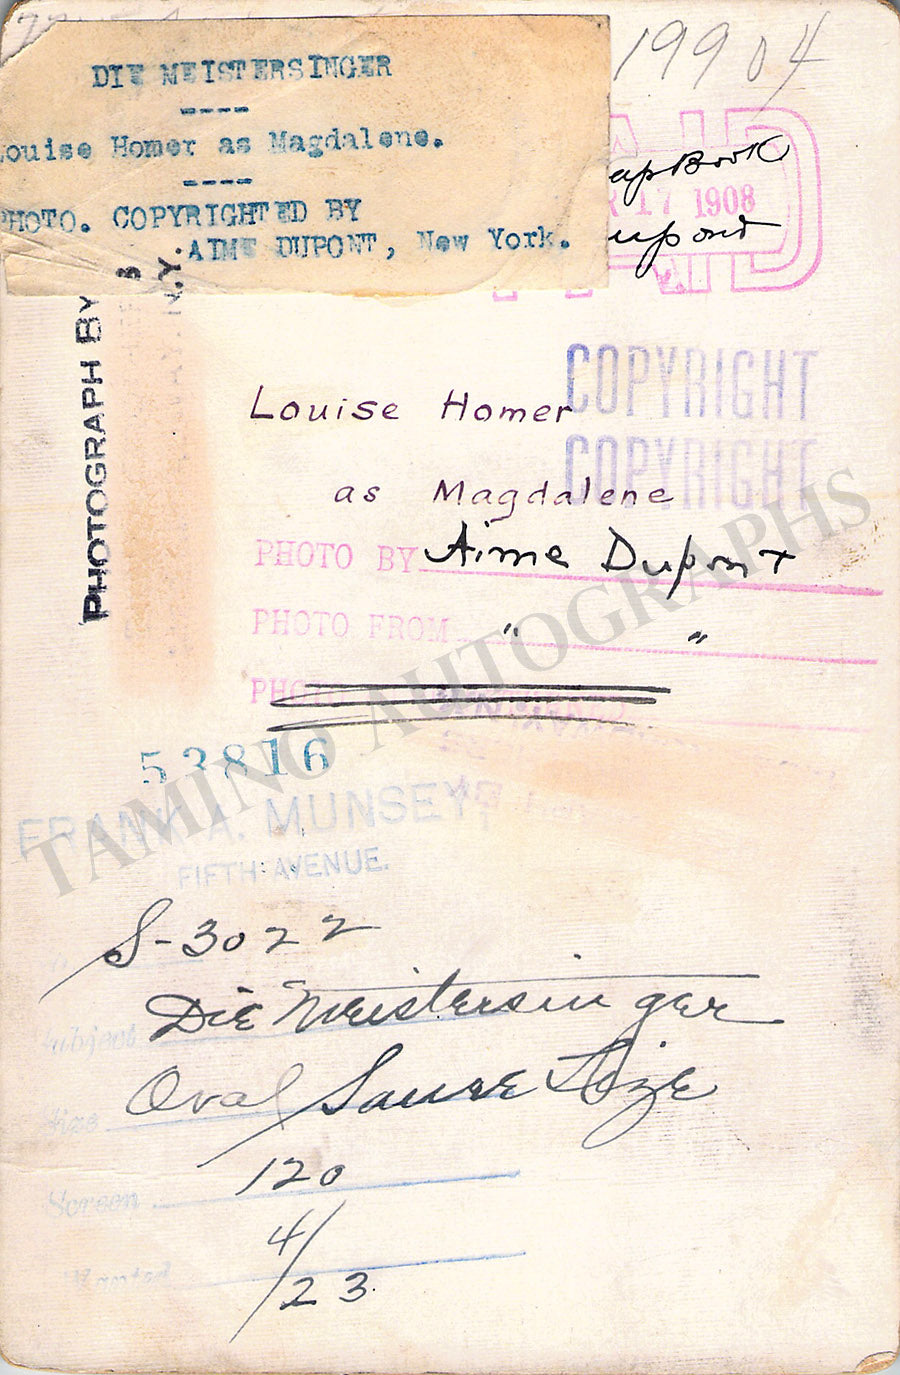 19904
DIE MEISTERSINGER
----
Louise Homer as Magdalene.
----
PHOTO. COPYRIGHTED BY
AIME DUPONT, New York.
17 1908
N.Y.
PHOTOGRAPH BY
COPYRIGHT
COPYRIGHT
Louise Homer
as Magdalene
PHOTO BY Aime Dupont
PHOTO FROM " "
PHOTO
53816
FRANK A. MUNSEY
FIFTH AVENUE.
S-3022
Subject Die Meistersinger
Size Oval Same Size
Screen 120
Wanted 4/23
TAMINO AUTOGRAPHS